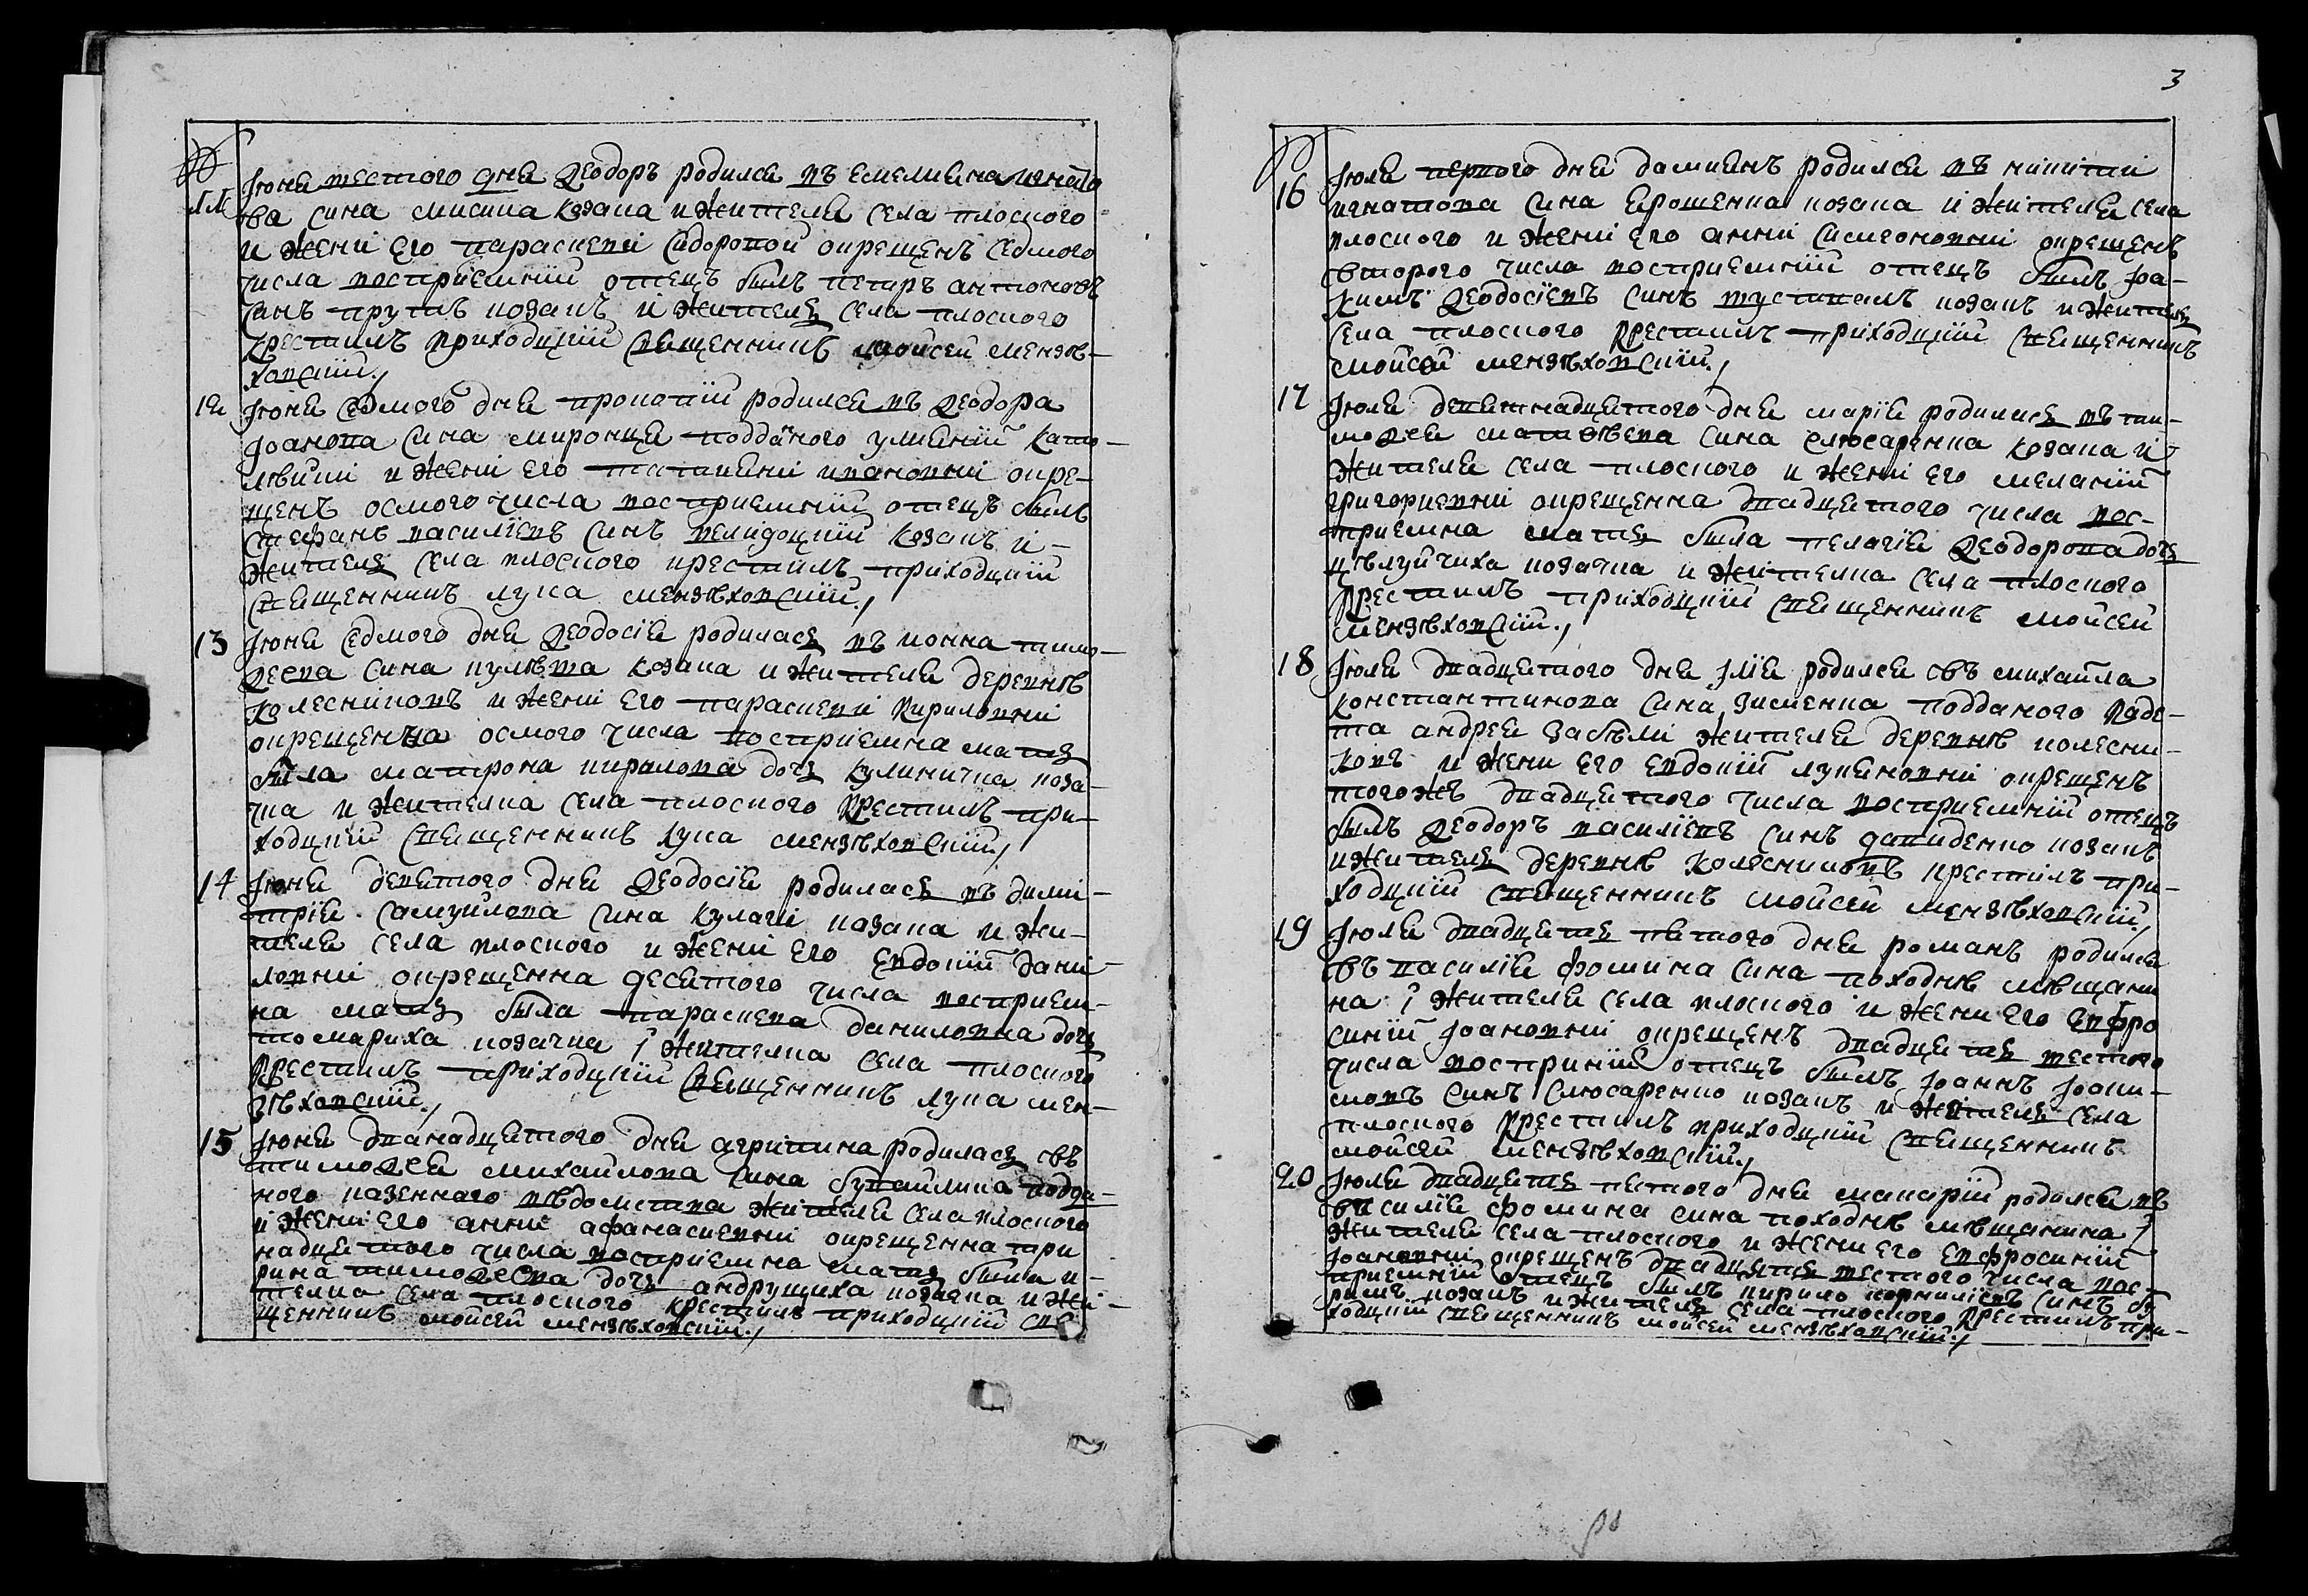 №
11 Іюня шестого дня Ѳеодоръ родился въ емелияна игнато
ва сина мисика козака и жителя села плоского
и жени его параскеви сидоровой окрещенъ седмого
числа восприемній отецъ билъ петръ антоновъ
синъ прутъ козакъ и житель села плоского
крестилъ приходцкій священникъ мойсей мензѣ-
ховскій
12 Іюня седмого дня прокопій родился въ Ѳеодора
Іоанова сина миронця подданого
и жени его татияни ивановни окре-
щенъ осмого числа восприемній отецъ билъ
стефанъ василіевъ синъ козакъ и
житель села плоского крестилъ приходцкій
священникъ лука мензѣховскій
13 Іюня седмого дня Ѳеодосія родилась въ иоана тимо-
Ѳеева сина кулѣша козака и жителя деревнѣ
колесніковъ и жени его параскеви кириловни
окрещенна осмого числа восприемна мать
была матрона кирилова дочь кулиничка коза-
чка и жителка села плоского крестилъ при-
ходцкій священникъ лука мензѣховскій
14 Іюня девятого дня Ѳеодосія родилась въ дими-
трія самуйлова сина кулаги козака и жи-
теля села плоского и жени его евдокіи дани-
ловни окрещенна десятого числа восприем-
на мать была параскева даниловна дочь
томариха козачка і жителка села плоского
крестилъ приходцкій священникъ лука мен-
зѣховскій
15 Іюня дванадцятого дня агрипина родилась въ
тимоѲея михайлова сина подда-
ного казенного вѣдомства жителя села плоского
и жени его анни афанасиевни окрещенна три
надцятого числа восприемна мать была и-
рина тимоѲеева дочь андрущиха козачка и жи-
телка села плоского крестилъ приходцкій свя
щенникъ мойсей мензѣховскій
3
№
16 Іюля первого дня дамиянъ родился въ никити
игнатова сина ярошенка козака и жителя села
плоского и жени его анни симеоновни окрещенъ
второго числа восприемній отецъ билъ Іоа-
кимъ Ѳеодосіевъ синъ козакъ и житель
села плоского крестилъ приходцкій священникъ
мойсей мензѣховскій
17 Іюля девятнадцятого дня марія родилась въ ти-
моѲея матвѣева сина слюсаренка козака и
жителя села плоского и жени его меланіи
григориевни окрещенна двадцятого числа вос-
приемна мать была пелагія Ѳеодорова дочь
цѣлуйчиха козачка и жителка села плоского
крестилъ приходцкій священникъ мойсей
мензѣховскій
18 Іюля двадцятого дня Ілія родился въ михайла
константинова сина зисченка подданого каде-
та андрея забѣли жителя деревнѣ колесни-
ковъ и жени его евдокіи лукяновни окрещенъ
того жъ двадцятого числа восприемній отецъ
былъ Ѳеодоръ василіевъ синъ давиденко козакъ
и житель деревнѣ колесниковъ крестилъ при-
ходцкій священникъ мойсей мензѣховскій
19 Іюля двадцять пятого дня романъ родился
въ василія фомина сина походнѣ мѣщани
на і жителя села плоского і жени его евфро
синіи Іоановни окрещенъ двадцять шестого
числа восприний отецъ былъ Іоаннъ Іоаки-
мовъ синъ слюсаренко козакъ и житель села
плоского крестилъ приходцкій священникъ
мойсей мензѣховскій
20 Іюля двадцять пятого дня макарій родился въ
василія фомина сина походнѣ мѣщанина і
жителя села плоского и жени его евфросиніи
Іоановни окрещенъ двадцять шестого числа вос-
приемній отецъ былъ кирило корниліевъ синъ
козакъ и житель села плоского крестилъ при-
ходцкій священникъ мойсей мензѣховскій